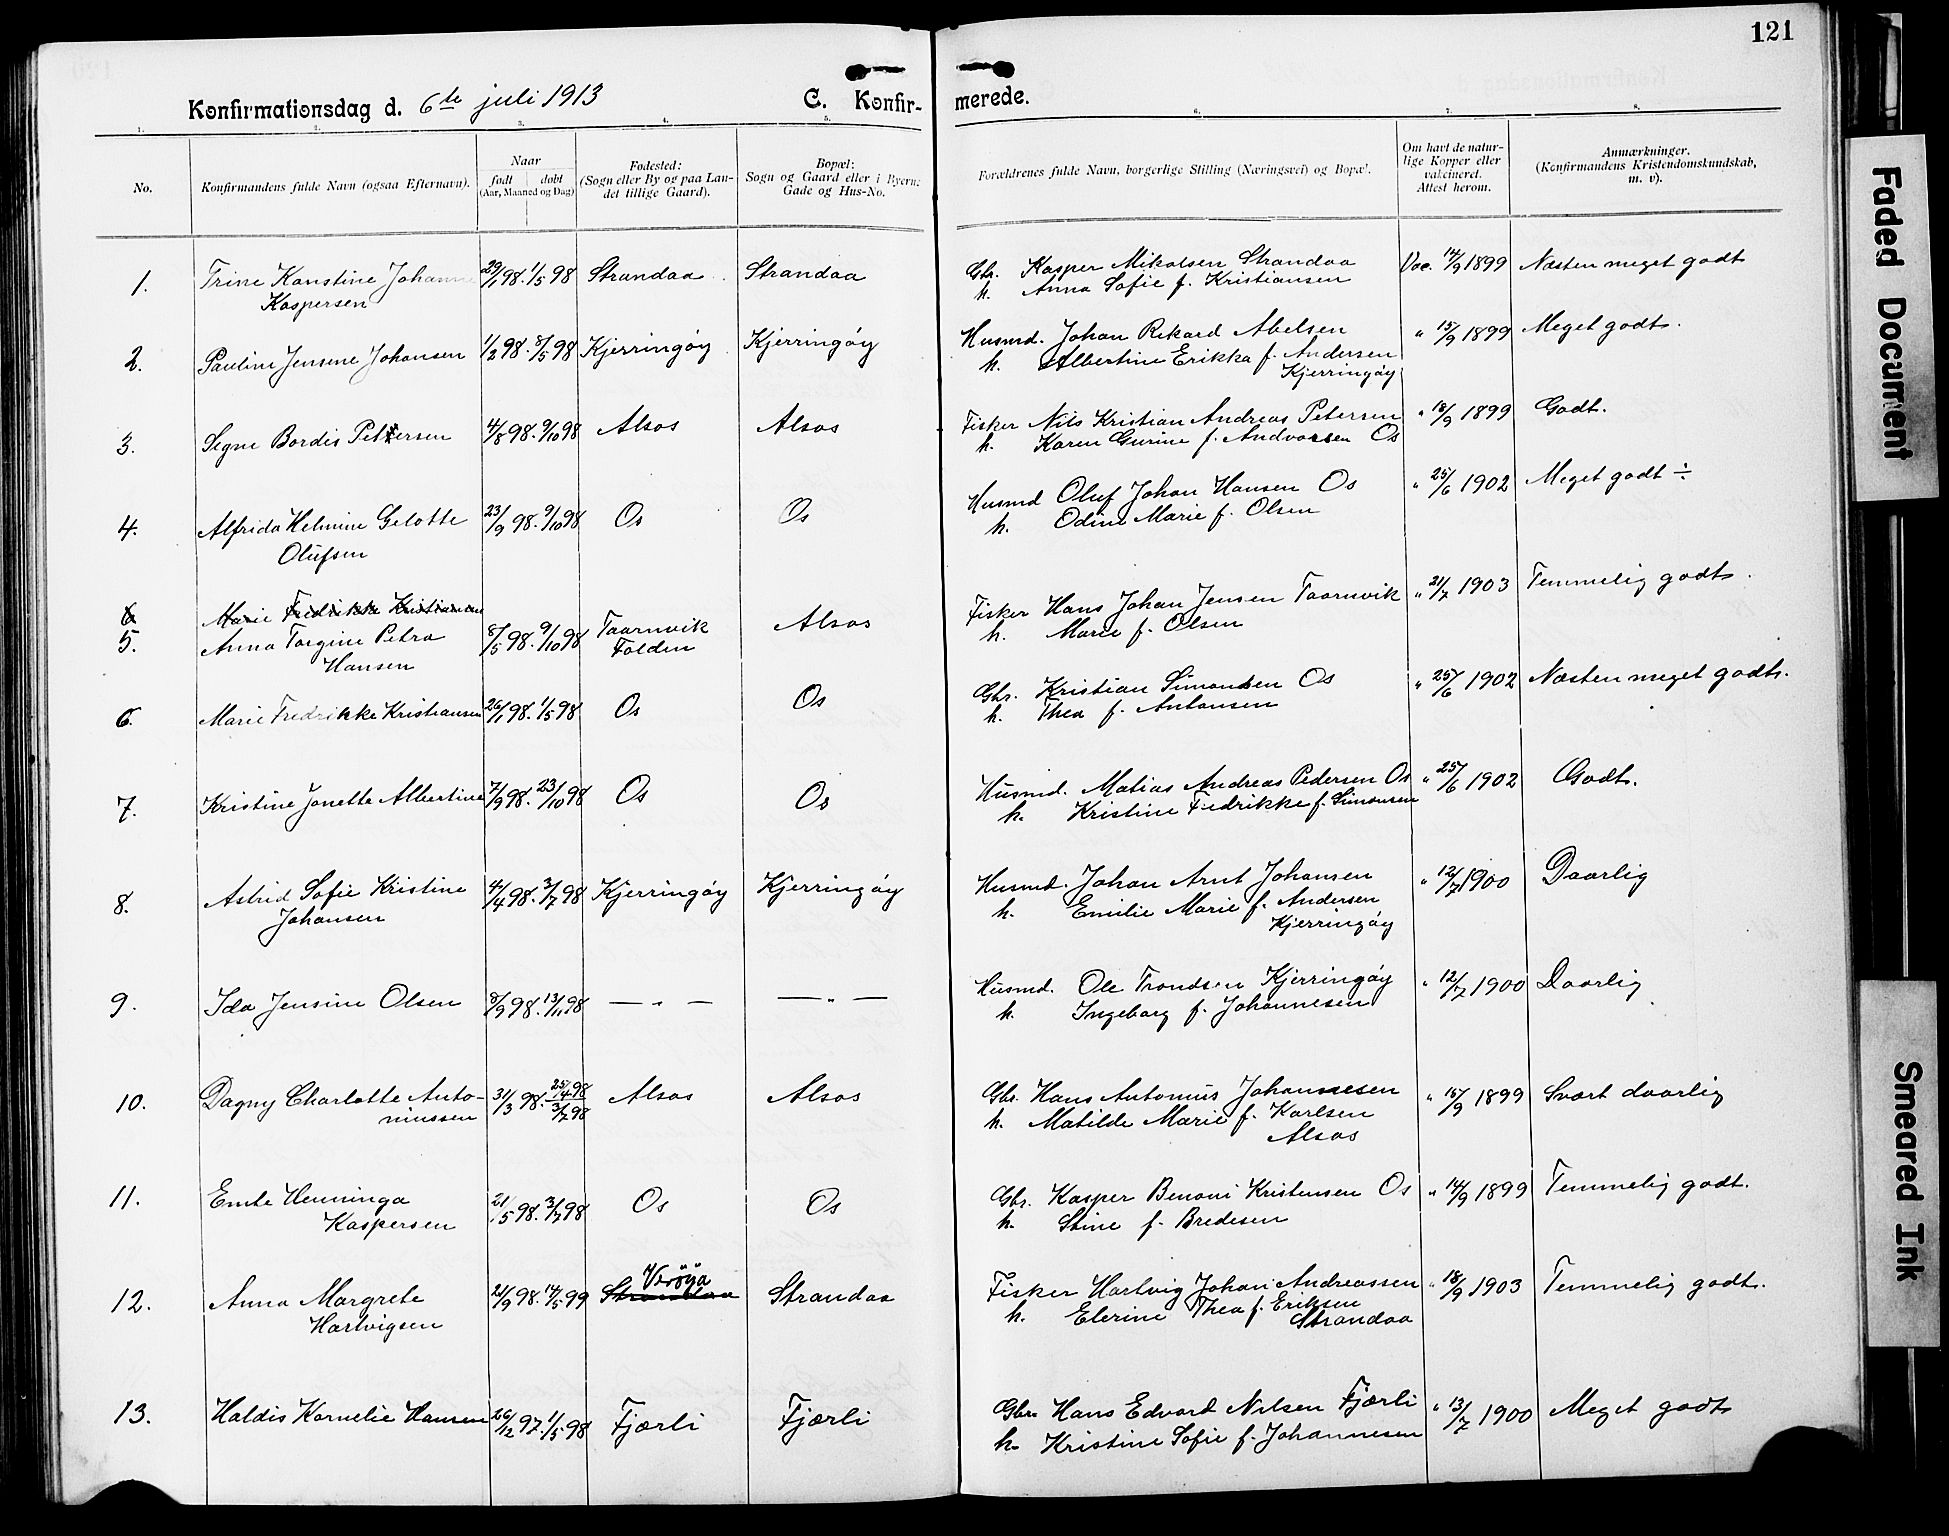 121
Konfirmationsdag d. 6te juli 1913 C. Konfir-merede.
1. 2. 3. 4. 5. 6. 7. 8.
No.
Konfirmandens fulde Navn (ogsaa Efternavn).
Naar
født døbt
(Aar, Maaned og Dag)
Fødested:
(Sogn eller By og paa Lan-
det tillige Gaard).
Bopæl:
Sogn og Gaard eller i Byern:
Gade og Hus-No.
Forældrenes fulde Navn, borgerlige Stilling (Næringsvei) og Bopæl.
Om havt de natur-
lige Kopper eller
vakcineret.
Attest herom.
Anmærkninger.
(Konfirmandens Kristendomskundskab,
m. v).
1. Trine Konstine Johanne 29/1 98. 1/5 98 Strandaa Strandaa Gbr. Kasper Mikalsen Strandaa Vac. 14/9 1899 Næsten meget godt
Kaspersen h. Anna Sofie f. Kristiansen
2. Pauline Jensine Johansen 1/2 98. 8/5 98 Kjerringøy Kjerringøy Husmd. Johan Rikard Abelsen " 15/9 1899 Meget godt.
h. Albertine Erikka f. Andersen
Kjerringøy
3. Signe Bordis Petersen 4/8 98. 9/10 98 Alsos Alsos Fisker Nils Kristian Andreas Petersen " 18/9 1899 Godt.
h. Karen Gurine f. Andvorsen Os
4. Alfrida Helmine Gelotte 23/9 98. 9/10 98 Os Os Husmd Oluf Johan Hansen Os " 25/6 1902 Meget godt ÷
Olufsen h. Odine Marie f. Olsen
6 Marie Fredrikke Kristiansen
5. Anna Torgine Petra 8/5 98. 9/10 98 Taarnvik Alsos Fisker Hans Johan Jensen Taarnvik " 21/7 1903 Temmelig godt.
Hansen Folden h. Marie f. Olsen
6. Marie Fredrikke Kristiansen 26/1 98. 1/5 98 Os Os Gbr. Kristian Simonsen Os " 25/6 1902 Næsten meget godt.
h. Thea f. Antonsen
7. Kristine Jonette Albertine 7/9 98. 23/10 98 Os Os Husmd. Matias Andreas Pedersen Os " 25/6 1902 Godt.
h. Kristine Fredrikke f. Simonsen
8. Astrid Sofie Kristine 4/4 98. 3/7 98 Kjerringøy Kjerringøy Husmd. Johan Arnt Johansen " 12/7 1900 Daarlig
Johansen h. Emilie Marie f. Andersen
Kjerringøy
9. Ida Jensine Olsen 8/9 98. 13/11 98 — " — — " — Husmd. Ole Trondsen Kjerringøy " 12/7 1900 Daarlig
h. Ingeborg f. Johannesen
10. Dagny Charlotte Anto- 31/3 98. 25/4 98 Alsos Alsos Gbr. Hans Antonius Johannesen " 15/9 1899 Svært daarlig
niussen 3/7 98 h. Matilde Marie f. Karlsen
Alsos
11. Emte Henninga 21/5 98. 3/7 98 Os Os Gbr. Kasper Benoni Kristensen Os " 14/9 1899 Temmelig godt.
Kaspersen h. Stine f. Bredesen
12. Anna Margrete 21/9 98. 14/5 99 Strandaa Verøya Strandaa Fisker Hartvig Johan Andreassen " 18/9 1903 Temmelig godt.
Hartvigsen h. Elerine Thea f. Eriksen
Strandaa
13. Haldis Kornelie Hansen 26/12 97. 1/5 98 Fjærli Fjærli Gbr. Hans Edvard Nilsen Fjærli " 13/7 1900 Meget godt
h. Kristine Sofie f. Johannesen
Faded Document
Smeared Ink